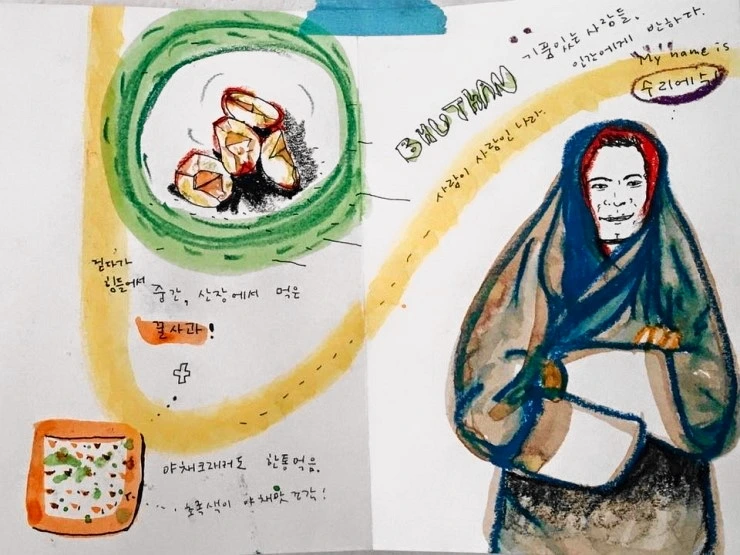 걷다가
힘들어서
중간, 산장에서 먹은
꿀사과!
야채크래커도 한통먹음.
초록색이 야채맛 조각!
BHUTHAN
기품있는 사람들.
인간에게 반하다.
사람이 사람인 나라.
My name is
수리에수